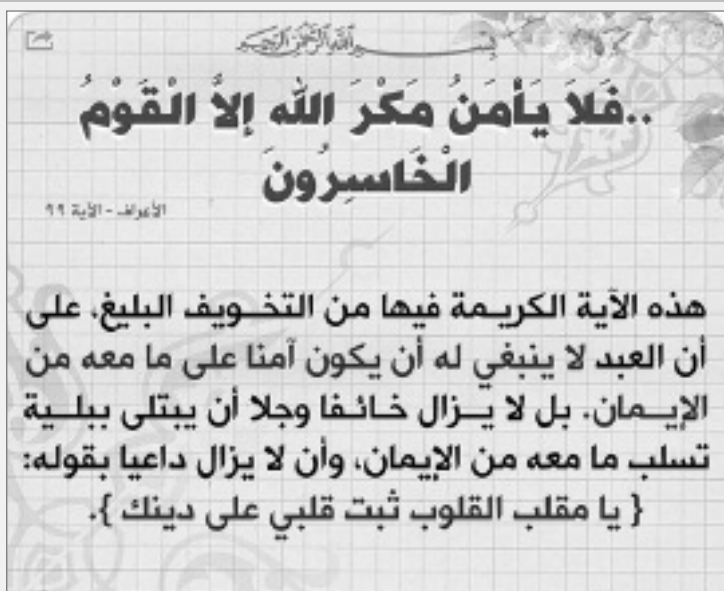 بسم الله الرحمن الرحيم
..فَلاَ يَأْمَنُ مَكْرَ اللّهِ إِلاَّ الْقَوْمُ
الْخَاسِرُونَ
الأعراف - الآية ٩٩
هذه الآية الكريمة فيها من التخويف البليغ، على
أن العبد لا ينبغي له أن يكون آمنا على ما معه من
الإيمان. بل لا يزال خائفا وجلا أن يبتلى ببلية
تسلب ما معه من الإيمان، وأن لا يزال داعيا بقوله:
{ يا مقلب القلوب ثبت قلبي على دينك }.